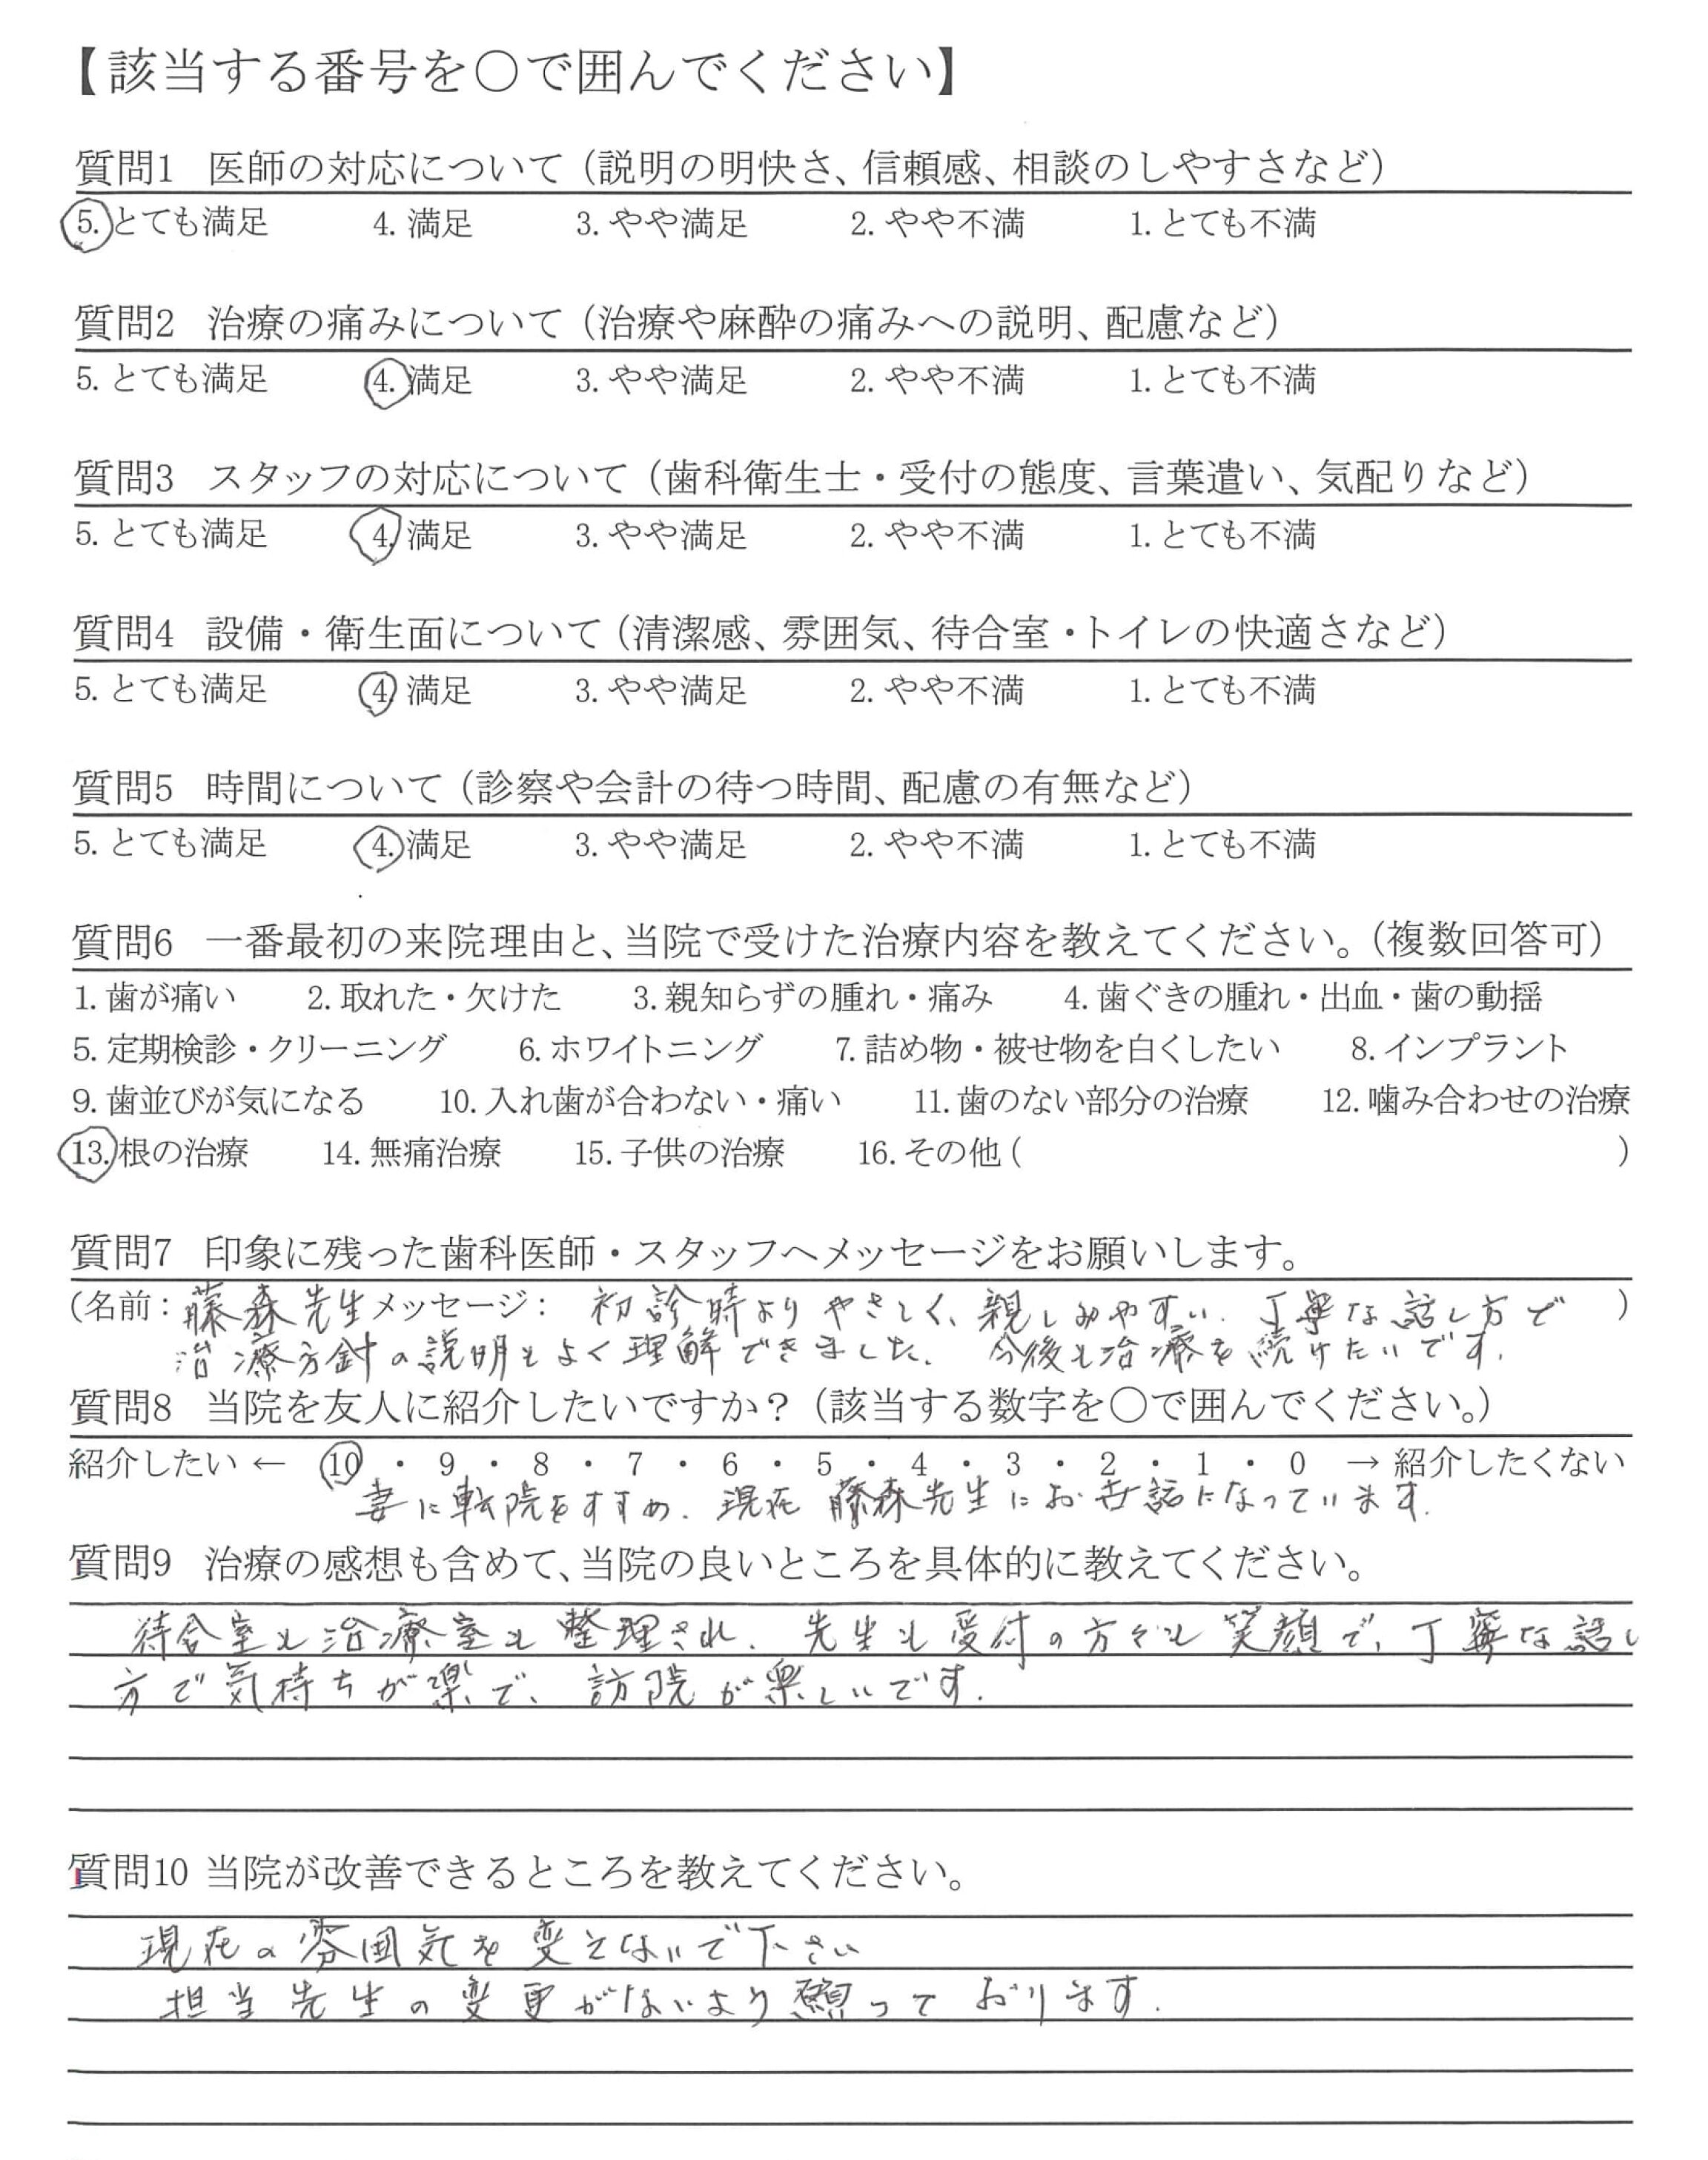 【該当する番号を〇で囲んでください】
質問1 医師の対応について（説明の明快さ、信頼感、相談のしやすさなど）
5. とても満足 4. 満足 3. やや満足 2. やや不満 1. とても不満
質問2 治療の痛みについて（治療や麻酔の痛みへの説明、配慮など）
5. とても満足 4. 満足 3. やや満足 2. やや不満 1. とても不満
質問3 スタッフの対応について（歯科衛生士・受付の態度、言葉遣い、気配りなど）
5. とても満足 4. 満足 3. やや満足 2. やや不満 1. とても不満
質問4 設備・衛生面について（清潔感、雰囲気、待合室・トイレの快適さなど）
5. とても満足 4. 満足 3. やや満足 2. やや不満 1. とても不満
質問5 時間について（診察や会計の待つ時間、配慮の有無など）
5. とても満足 4. 満足 3. やや満足 2. やや不満 1. とても不満
質問6 一番最初の来院理由と、当院で受けた治療内容を教えてください。（複数回答可）
1. 歯が痛い 2. 取れた・欠けた 3. 親知らずの腫れ・痛み 4. 歯ぐきの腫れ・出血・歯の動揺
5. 定期検診・クリーニング 6. ホワイトニング 7. 詰め物・被せ物を白くしたい 8. インプラント
9. 歯並びが気になる 10. 入れ歯が合わない・痛い 11. 歯のない部分の治療 12. 噛み合わせの治療
13. 根の治療 14. 無痛治療 15. 子供の治療 16. その他（ ）
質問7 印象に残った歯科医師・スタッフへメッセージをお願いします。
（名前：藤森先生 メッセージ： 初診時よりやさしく、親しみやすい。丁寧な話し方で ）
治療方針の説明もよく理解できました。 今後も治療を続けたいです。
質問8 当院を友人に紹介したいですか？（該当する数字を〇で囲んでください。）
紹介したい ← 10 ・ 9 ・ 8 ・ 7 ・ 6 ・ 5 ・ 4 ・ 3 ・ 2 ・ 1 ・ 0 → 紹介したくない
妻に転院をすすめ、現在 藤森先生にお世話になっています。
質問9 治療の感想も含めて、当院の良いところを具体的に教えてください。
待合室も治療室も整理され、先生も受付の方々も笑顔で、丁寧な話し
方で気持ちが楽で、訪院が楽しいです。
質問10 当院が改善できるところを教えてください。
現在の雰囲気を変えないで下さい
担当先生の変更がないよう願っております。